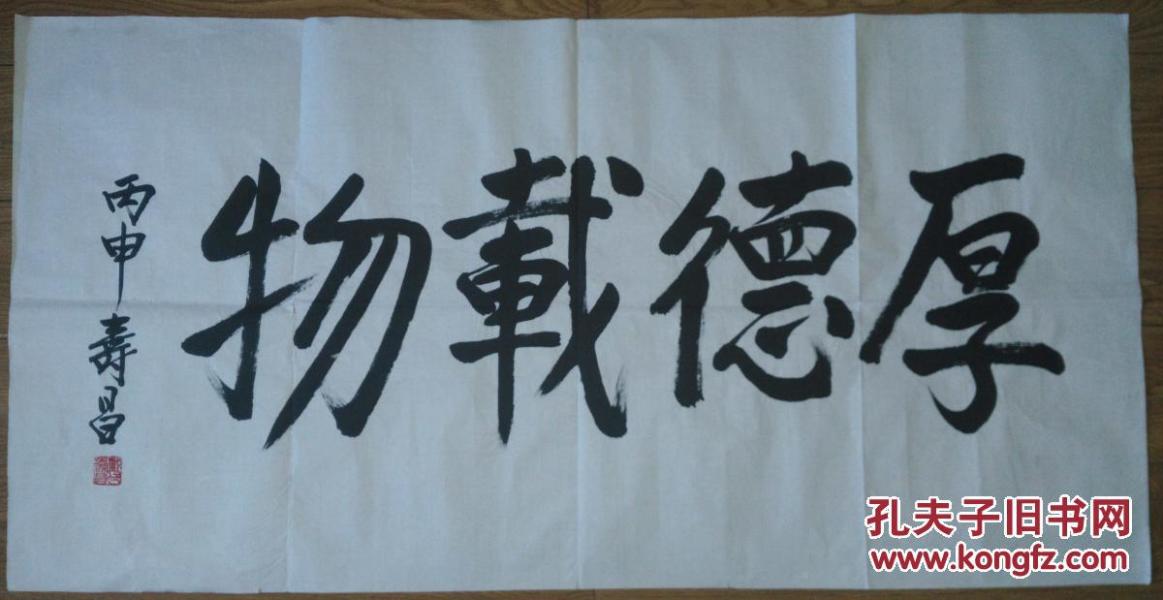 厚德載物
丙申 壽昌
孔夫子旧书网
www.kongfz.com